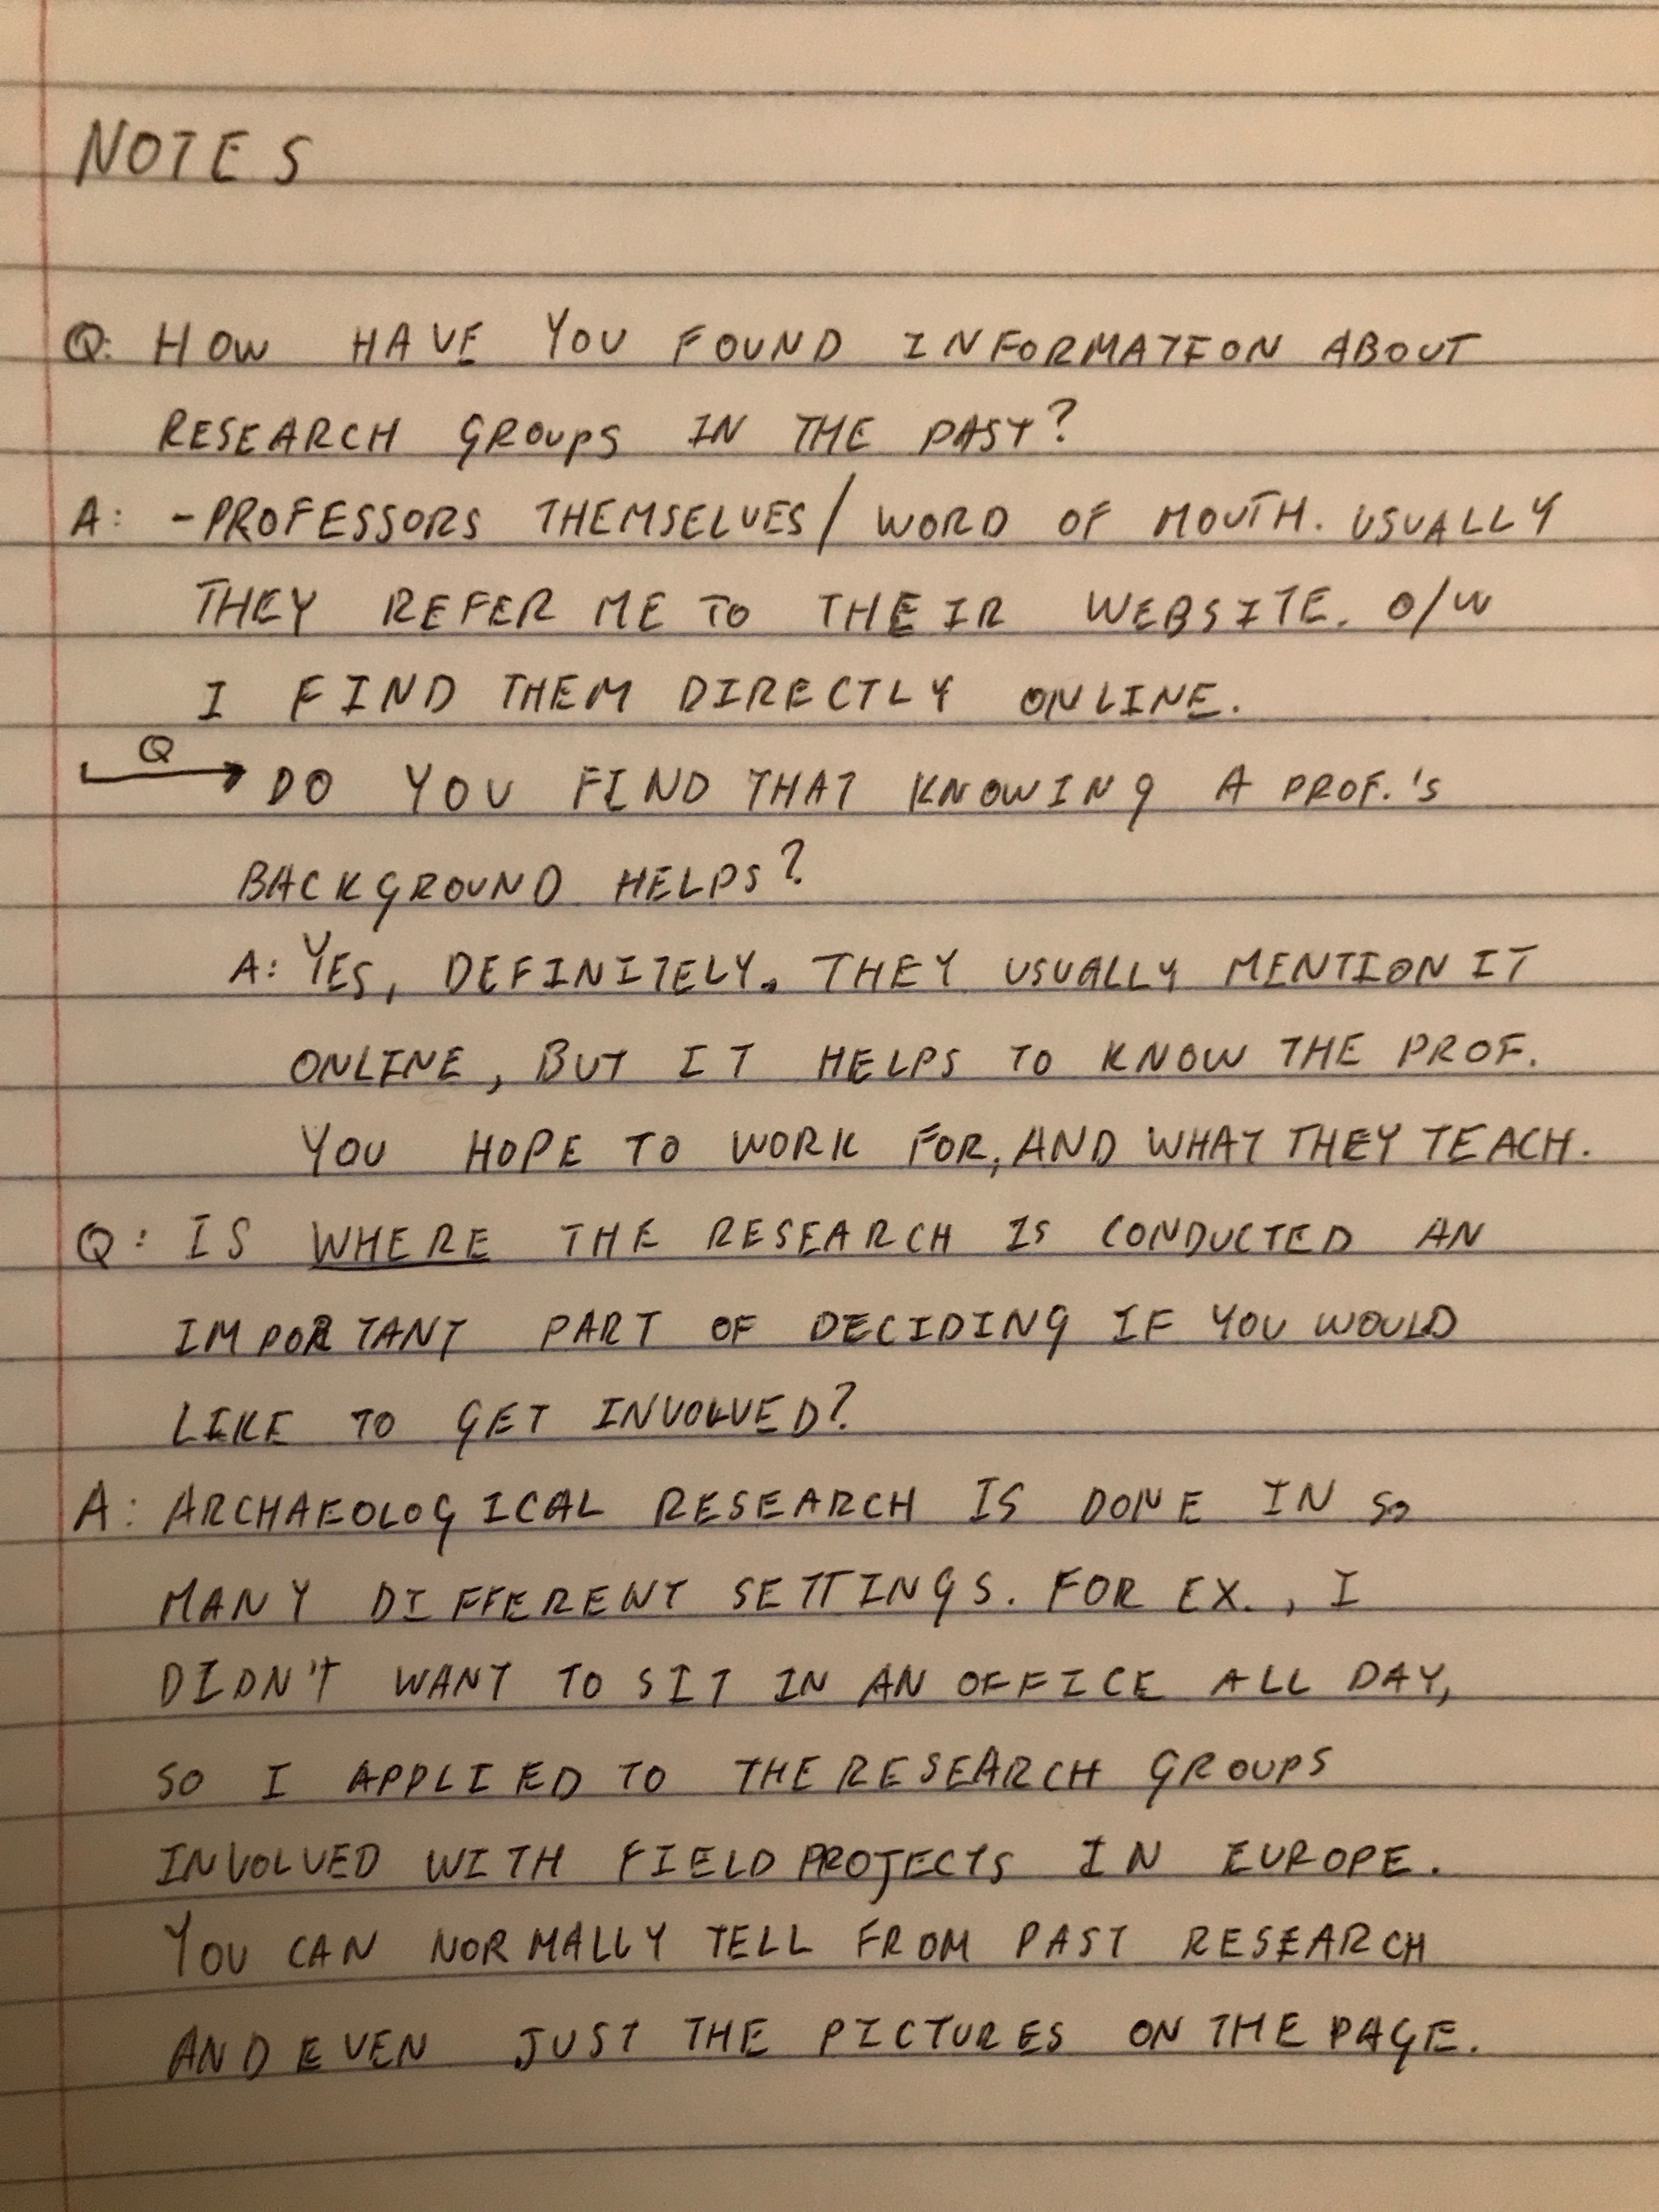 NOTES
Q: HOW HAVE YOU FOUND INFORMATION ABOUT
RESEARCH GROUPS IN THE PAST?
A: -PROFESSORS THEMSELVES/WORD OF MOUTH. USUALLY
THEY REFER ME TO THEIR WEBSITE. O/W
I FIND THEM DIRECTLY ONLINE.
Q → DO YOU FIND THAT KNOWING A PROF.'S
BACKGROUND HELPS?
A: YES, DEFINITELY. THEY USUALLY MENTION IT
ONLINE, BUT IT HELPS TO KNOW THE PROF.
YOU HOPE TO WORK FOR, AND WHAT THEY TEACH.
Q: IS WHERE THE RESEARCH IS CONDUCTED AN
IMPORTANT PART OF DECIDING IF YOU WOULD
LIKE TO GET INVOLVED?
A: ARCHAEOLOGICAL RESEARCH IS DONE IN SO
MANY DIFFERENT SETTINGS. FOR EX., I
DIDN'T WANT TO SIT IN AN OFFICE ALL DAY,
SO I APPLIED TO THE RESEARCH GROUPS
INVOLVED WITH FIELD PROJECTS IN EUROPE.
YOU CAN NORMALLY TELL FROM PAST RESEARCH
AND EVEN JUST THE PICTURES ON THE PAGE.